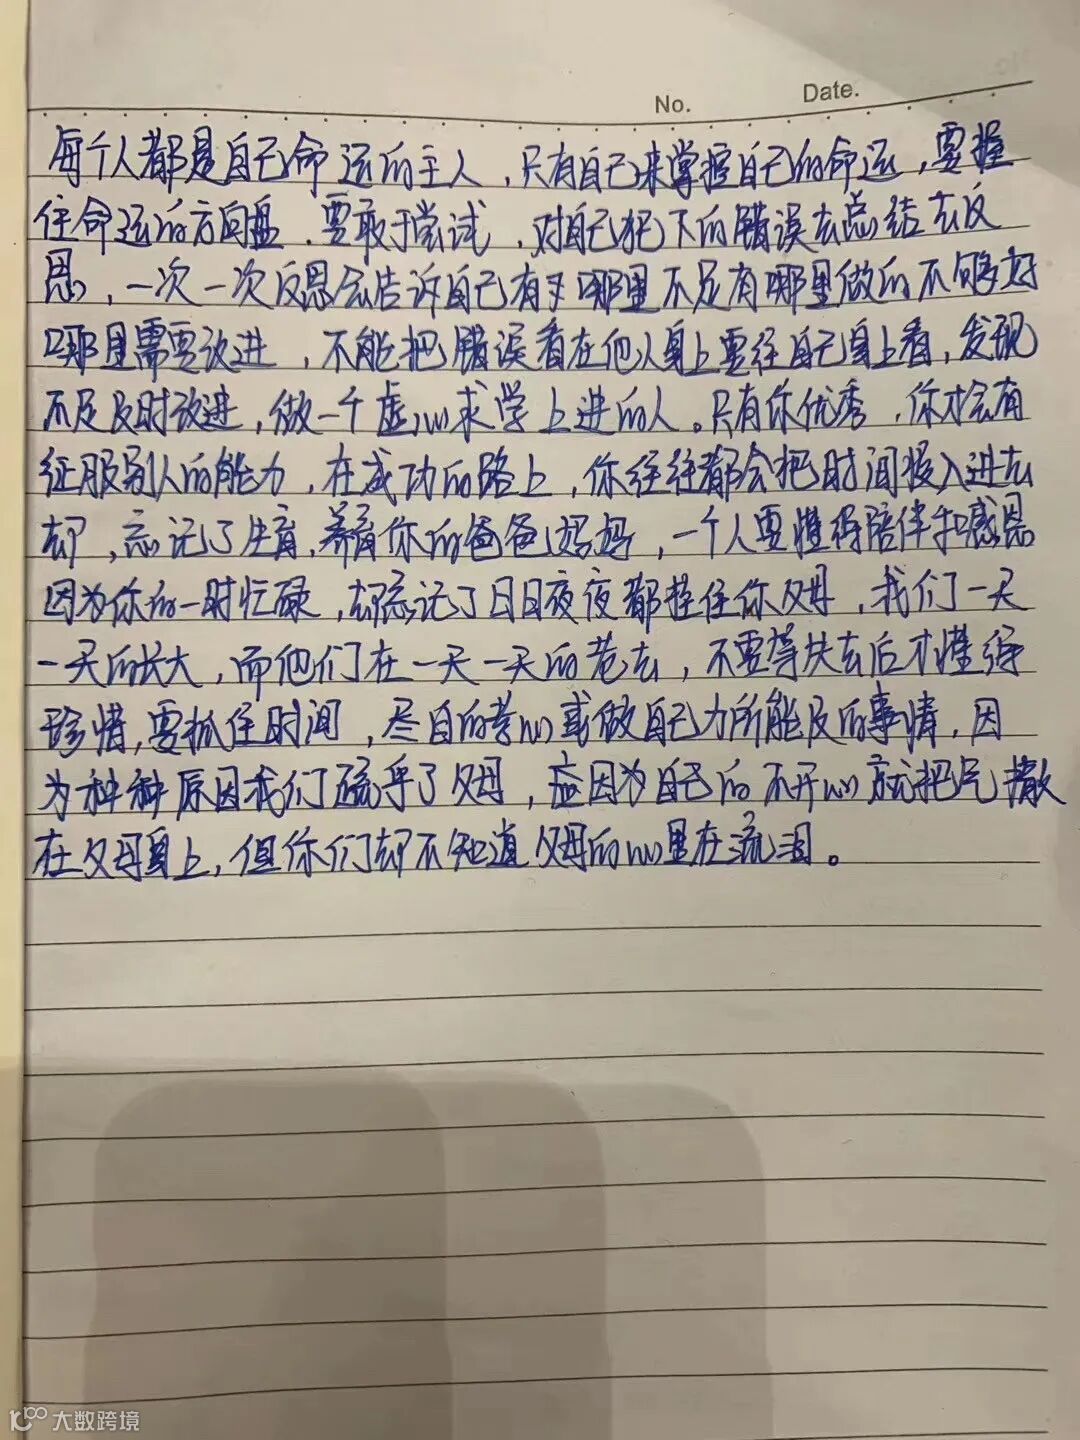 No. Date.
每个人都是自己命运的主人，只有自己来掌握自己的命运，要握
住命运的方向盘，要敢于尝试，对自己犯下的错误去总结去反
思，一次一次反思会告诉自己有哪里不足有哪里做的不够好
哪里需要改进，不能把错误看在他人身上要往自己身上看，发现
不足及时改进，做一个虚心求学上进的人。只有你优秀，你才会有
征服别人的能力，在成功的路上，你往往都会把时间投入进去
却，忘记了生育，养育你的爸爸妈妈，一个人要懂得陪伴和感恩
因为你的一时忙碌，却忘记了日日夜夜都挂住你父母，我们一天
一天的长大，而他们在一天一天的苍去，不要等失去后才懂得
珍惜，要抓住时间，尽自的孝心或做自己力所能及的事情，因
为种种原因我们疏乎了父母，应因为自己的不开心就把气撒
在父母身上，但你们却不知道父母的心里在流泪。
大数跨境